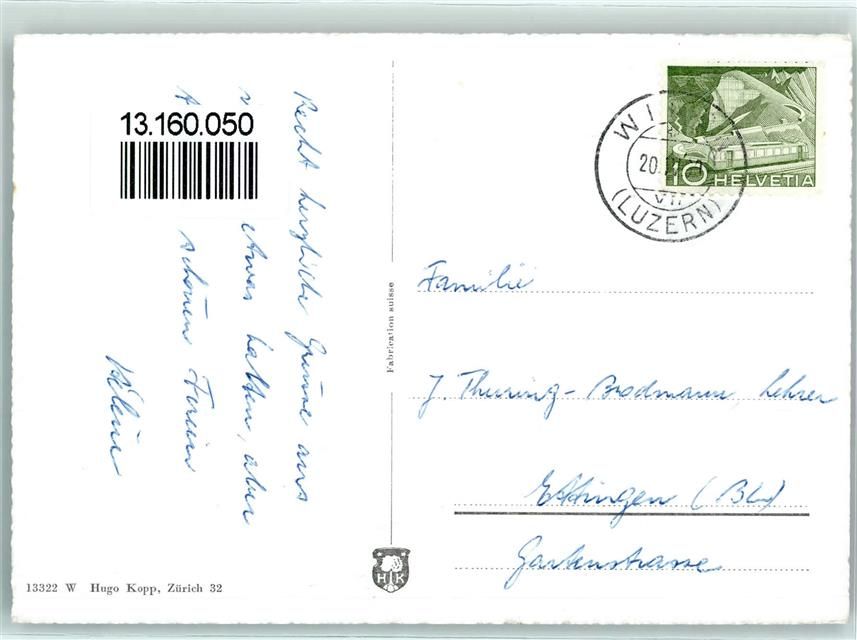 13.160.050
Recht herzliche Grüsse aus
etwas kalten, aber
schönen Ferien
Hélène
13322 W Hugo Kopp, Zürich 32
Fabrication suisse
HK
(LUZERN)
20.
VII
10 HELVETIA
Familie
J. Thüring-Brodmann, Lehrer
Ettingen (BL)
Gartenstrasse